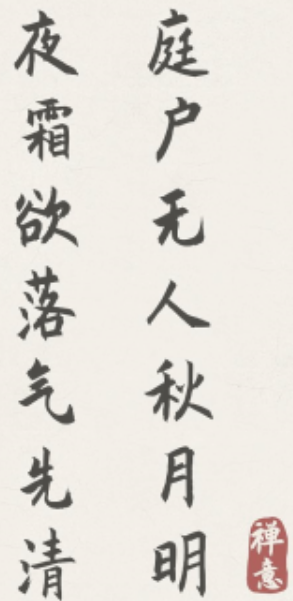 庭户无人秋月明
夜霜欲落气先清
禅意